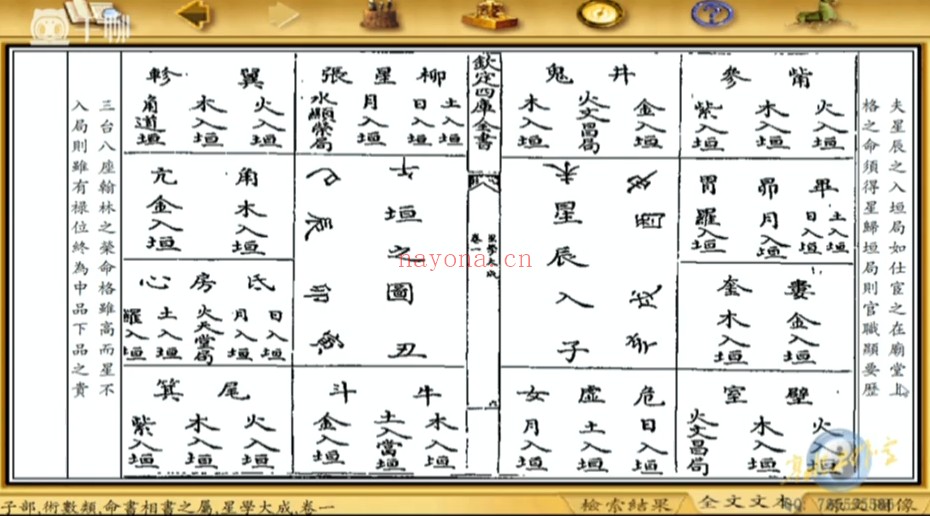 夫星辰之入垣局如仕宦之在廟堂上
格之命須得星歸垣局則官職顯要歷
觜
參
火入垣
木入垣
紫入垣
井
鬼
金入垣
火文昌局
木入垣
畢
昴
胃
土入垣
日入垣
月入垣
羅入垣
婁
奎
金入垣
木入垣
壁
室
火入垣
木入垣
火文昌局
危
虛
女
日入垣
土入垣
月入垣
未星辰入子
欽定四庫全書
星學大成
卷一
六
柳
星
張
土入垣
日入垣
月入垣
水顯紫局
翼
軫
火入垣
木入垣
角道垣
角
亢
木入垣
金入垣
氐
房
心
日入垣
月入垣
火天堂局
土入垣
羅入垣
尾
箕
火入垣
木入垣
紫入垣
牛
斗
木入垣
土入當垣
金入垣
垣之圖丑
辰
卯
三台八座翰林之榮命格雖高而星不
入局則雖有祿位終為中品下品之貴
nayona.cn
子部,術數類,命書相書之屬,星學大成,卷一
檢索結果
全文文本